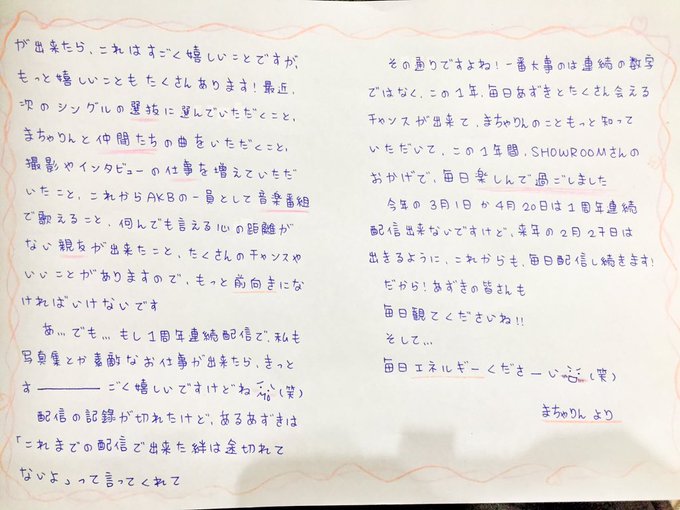 が出来たら、これはすごく嬉しいことですが、
もっと嬉しいこともたくさんあります！最近、
次のシングルの選抜に選んでいただくこと、
まちゃりんと仲間たちの曲をいただくこと、
撮影やインタビューの仕事を増えていただ
いたこと、これからAKBの一員として音楽番組
で歌えること、何んでも言える心の距離が
ない親友が出来たこと、たくさんのチャンスや
いいことがありますので、もっと前向きにな
ければいけないです
あ...でも...もし1周年連続配信で、私も
写真集とか素敵なお仕事が出来たら、きっと
す――――ごく嬉しいですけどね(笑)
配信の記録が切れたけど、あるあずきは
「これまでの配信で出来た絆は途切れて
ないよ」って言ってくれて
その通りですよね！一番大事のは連続の数字
ではなく、この1年、毎日あずきとたくさん会える
チャンスが出来て、まちゃりんのこともっと知って
いただいて、この1年間、SHOWROOMさんの
おかげで、毎日楽しんで過ごしました
今年の3月1日か4月20日は1周年連続
配信出来ないですけど、来年の2月27日は
出きるように、これからも、毎日配信し続きます!
だから！あずきの皆さんも
毎日観てくださいね!!
そして...
毎日エネルギーくださーい(笑)
まちゃりんより